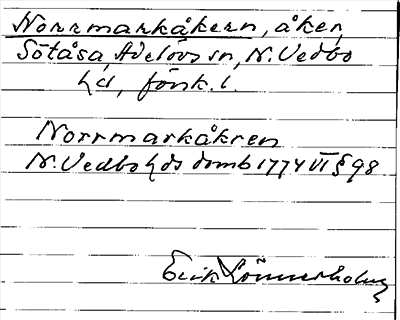 Norrmarkåkern, åker,
Sötåsa, Adelövs sn, N. Vedbo
hd, jönk. l.
Norrmarkåkren
N. Vedbo hds domb 1774 VI § 98
Erik Lönnerholm